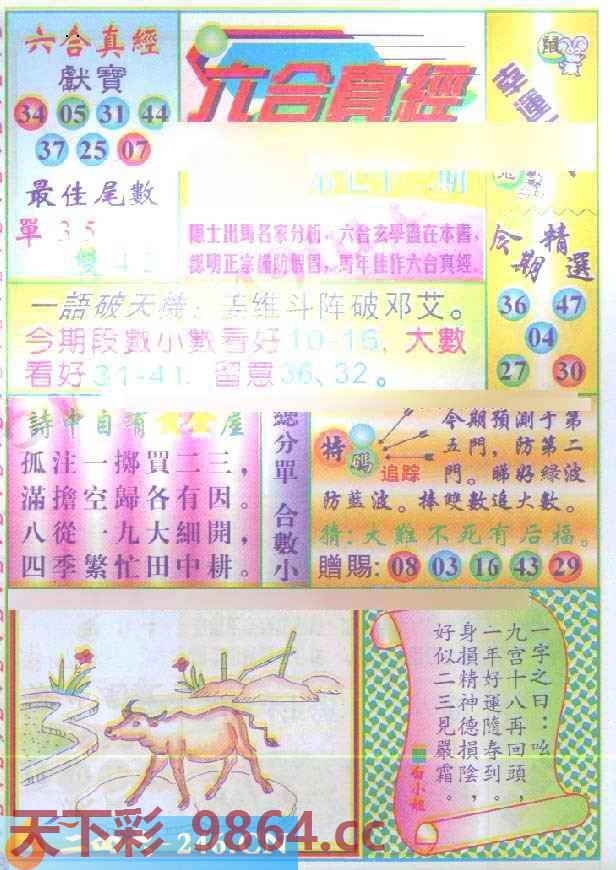 六合真經
獻寶
34 05 31 44
37 25 07
最佳尾數
單 3 5
六合真經
鼠
隱士出馬名家分析，六合玄學盡在本書，
認明正宗謹防假冒，馬年佳作六合真經
今期精選
36 47
04
27 30
一語破天機：姜维斗阵破邓艾。
今期段數小數看好10-16，大數
看好31-41，留意36、32。
詩中自有黃金屋
孤注一擲買二三，
滿擔空歸各有因。
八從一九大細開，
四季繁忙田中耕。
總分單 合數小
特碼
追踪
今期預測于第
五門，防第二
門。睇好綠波
防藍波。捧雙數追大數。
猜：大難不死有后福。
贈賜：08 03 16 43 29
一字之曰：吆
九宫十八再回頭，
一年好運隨春到。
身損精神德損陰，
好似二三見嚴霜。
白小姐
天下彩 9864.cc
246.CN